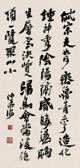 岱宗夫如何齊魯青未了造化
鍾神秀陰陽割昏曉盪胸
生層雲決眥入歸鳥會當凌絕
頂一覽眾山小